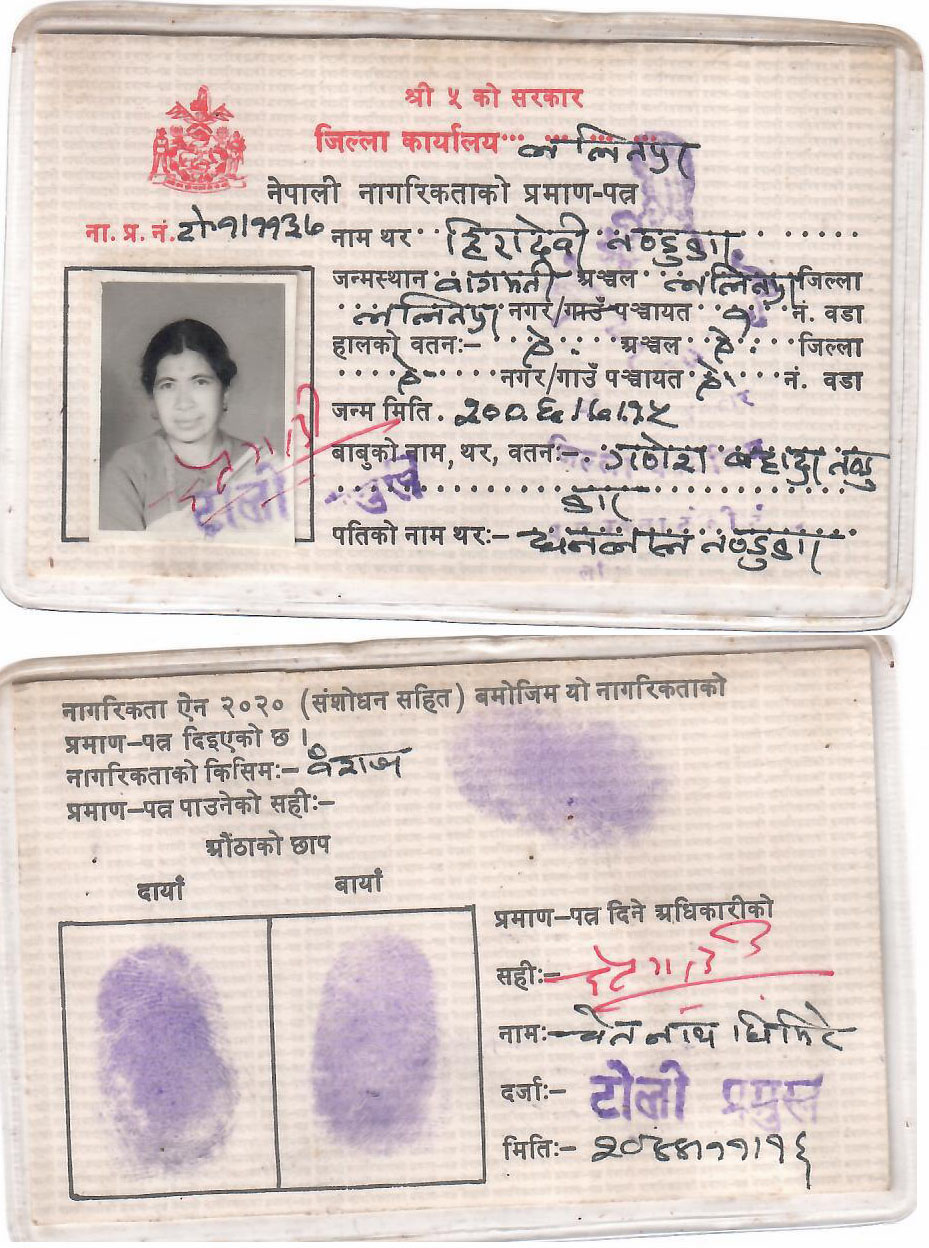 श्री ५ को सरकार
जिल्ला कार्यालय ललितपुर
नेपाली नागरिकताको प्रमाण-पत्र
ना. प्र. नं. नाम थर हिरादेवी
जन्मस्थान वागमती अञ्चल ललितपुर जिल्ला
ललितपुर नगर/गाउँ पञ्चायत नं. वडा
हालको वतनः- ऐ. अञ्चल ऐ. जिल्ला
ऐ नगर/गाउँ पञ्चायत ऐ नं. वडा
जन्म मिति
बाबुको नाम, थर, वतनः- गणेश बहादुर
पतिको नाम थरः-
टोली प्रमुख
नागरिकता ऐन २०२० (संशोधन सहित) बमोजिम यो नागरिकताको
प्रमाण-पत्र दिइएको छ ।
नागरिकताको किसिमः- वंशज
प्रमाण-पत्र पाउनेको सहीः-
औंठाको छाप
दायाँ बायाँ
प्रमाण-पत्र दिने अधिकारीको
सहीः-
नामः- नाथ घिमिरे
दर्जाः- टोली प्रमुख
मितिः-